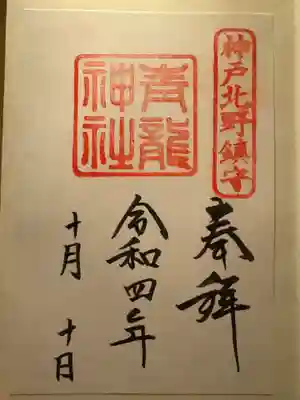 神戸北野鎮守
奉拝
青龍
神社
令和四年
十月 十日